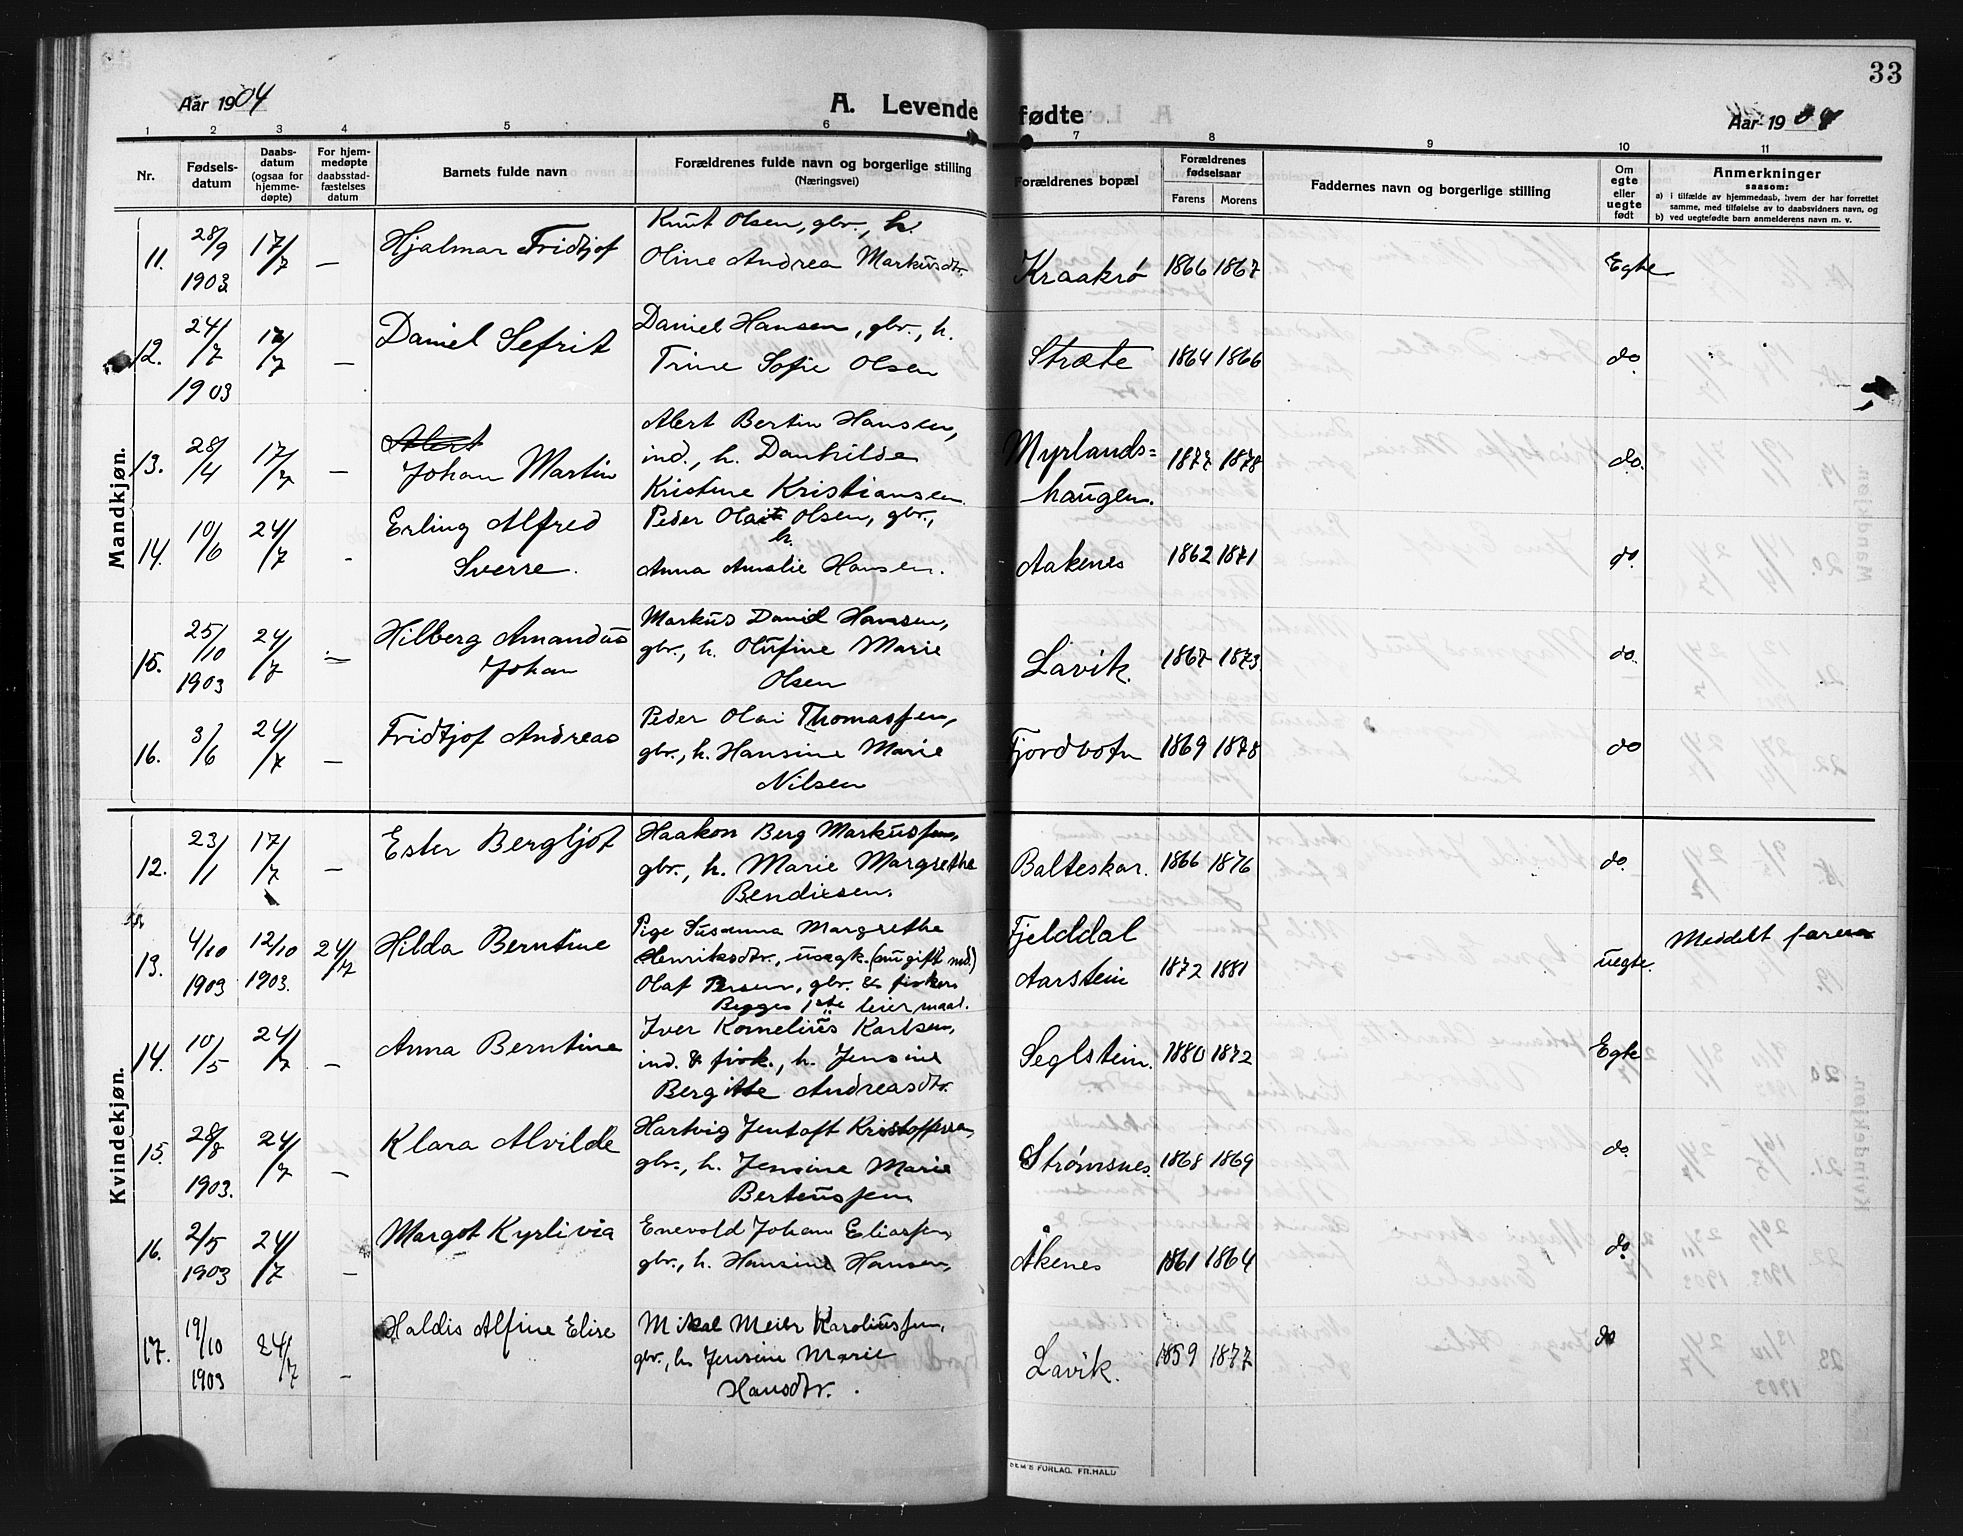 33
Aar 1904
A. Levende fødte
Aar 1904
1 2 3 4 5 6 7 8 9 10 11
Nr.
Fødsels-
datum
Daabs-
datum
(ogsaa for
hjemme-
døpte)
For hjem-
medøpte
daabsstad-
fæstelses
datum
Barnets fulde navn
Forældrenes fulde navn og borgerlige stilling
(Næringsvei)
Forældrenes bopæl
Forældrenes
fødselsaar
Farens Morens
Faddernes navn og borgerlige stilling
Om
egte
eller
uegte
født
Anmerkninger
saasom:
a) i tilfælde av hjemmedaab, hvem der har forrettet
samme, med tilføielse av to daabsvidners navn, og
b) ved uegtefødte barn anmelderens navn m. v.
Mandkjøn.
11. 28/9 1903 17/7 — Hjalmar Fridtjof
Knut Olsen, gbr., h.
Oline Andrea Markusdtr.
Kraakrø 1866 1867 Egte
12. 24/7 1903 17/7 — Daniel Sefrit
Daniel Hansen, gbr., h.
Trine Sofie Olsen
Stræte 1864 1866 do.
13. 28/4 17/7 — Alert
Johan Martin
Alert Bertin Hansen,
ind., h. Danhilde
Kristine Kristiansen.
Myrlands=
haugen. 1877 1878 do.
14. 10/6 24/7 - Erling Alfred
Sverre.
Peder Olait Olsen, gbr.,
h.
Anna Amalie Hansen.
Aakenes 1862 1871 do.
15. 25/10 1903 24/7 — Hilberg Amandus
Johan
Markus Daniel Hansen,
gbr., h. Olufine Marie
Olsen
Lavik. 1867 1873 do.
16. 3/6 24/7 — Fridtjof Andreas
Peder Olai Thomassen,
gbr., h. Hansine Marie
Nilsen
Fjordbotn 1869 1878 do
Kvindekjøn.
12. 23/1 17/7 — Ester Bergljot
Haakon Berg Markussen,
gbr., h. Marie Margrethe
Bendixsen.
Balteskar. 1866 1876 do.
13. 4/10 1903 12/10 1903. 24/7 Hilda Berntine
Pige Susanna Margrethe
Henriksdtr., usegk. (nu gift med)
Olaf Persen, gbr. & fisker
Begges 1ste leiermaal.
Fjelddal
Aarstein 1872 1881 uegte. Meddelt faren
14. 10/5 24/7 — Anna Berntine
Iver Kornelius Karlsen,
ind. & fisk., h. Jensine
Bergitte Andreasdtr.
Seglstein. 1880 1872 Egte
15. 28/8 1903. 24/7 — Klara Alvilde
Hartvig Jentoft Kristoffersen,
gbr., h. Jensine Marie
Berteussen
Strømsnes. 1868 1869 do.
16. 2/5 1903 24/7 — Margot Kyrlivia
Enevold Johan Eliassen,
gbr., h. Hansine Hansen,
Åkenes 1861 1864 do.
17. 19/10 1903 24/7 — Haldis Alfine Elise
Mikal Meier Karoliussen,
gbr., h. Jensine Marie
Hansdtr.
Lavik. 1859 1877 do
SEM'S FORLAG. FR.HALD